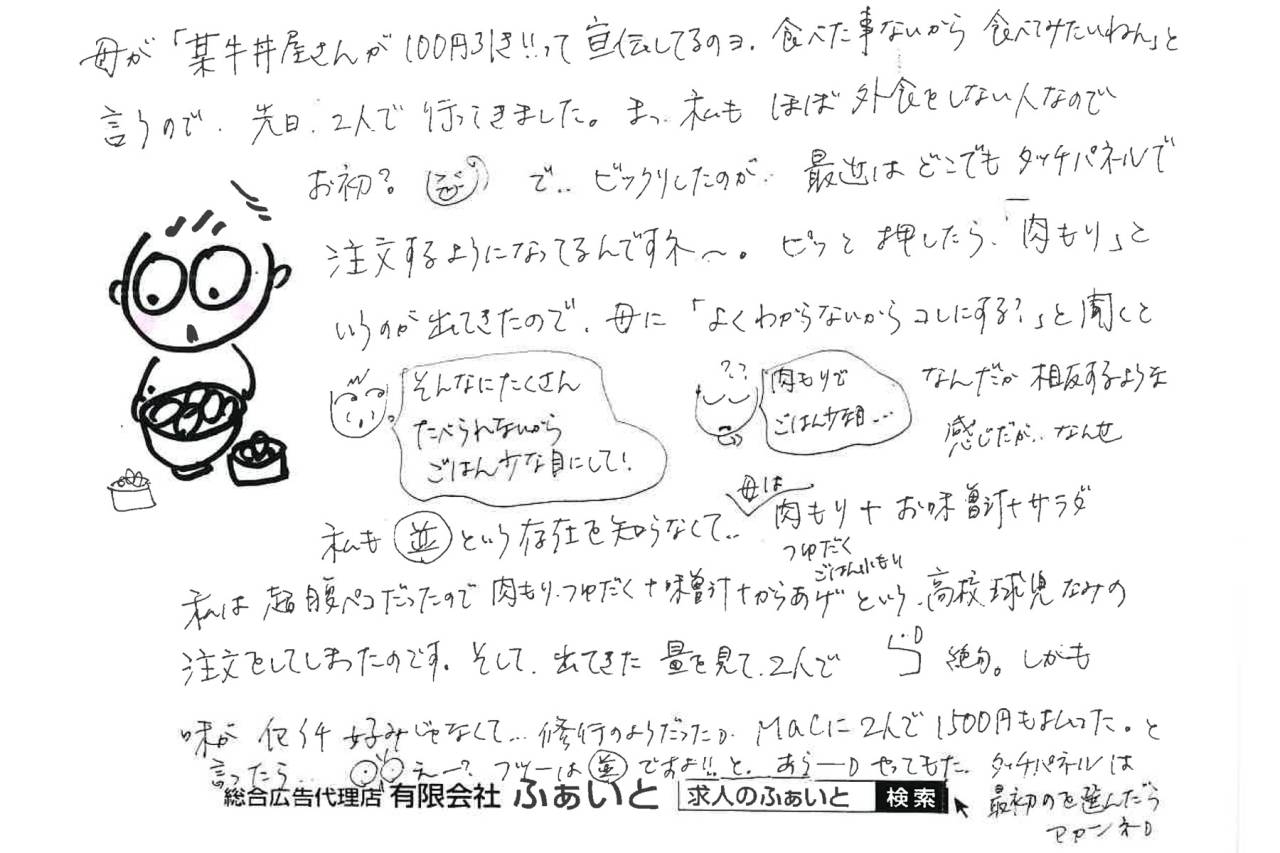 母が「某牛丼屋さんが100円引き!!って宣伝してるのヨ、食べた事ないから食べてみたいねん」と
言うので、先日、2人で行ってきました。まっ、私もほぼ外食をしない人なので
お初? で‥ビックリしたのが‥最近はどこでもタッチパネルで
注文するようになってるんですネ〜。ピッと押したら、「肉もり」と
いうのが出てきたので、母に「よくわからないからコレにする?」と聞くと
そんなにたくさん
たべられないから
ごはん少な目にして!
??
肉もりで
ごはん少な目…
なんだか相反するような
感じだが‥なんせ
私も並という存在を知らなくて‥母は肉もり+お味噌汁+サラダ
つゆだく
ごはん小もり
私は超腹ペコだったので肉もり、つゆだく+味噌汁+からあげという、高校球児なみの
注文をしてしまったのです。そして、出てきた量を見て、2人で 絶句。しかも
味が イチ好みじゃなくて…修行のようだった。Macに2人で1500円もはらった。と
言ったら… えー?フツーは並ですよ!!と、あらーやってもた。タッチパネルは
最初のを選んだら
アカンネ
総合広告代理店 有限会社 ふぁいと 求人のふぁいと 検索